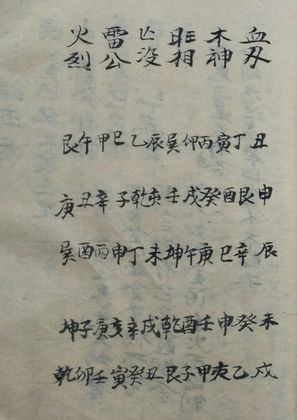 血刃丑申辰未戌
丁艮辛癸乙
木神寅酉巳申亥
丙癸庚壬甲
旺相卯戌午酉子
巽壬坤乾艮
亡没辰亥未戌丑
乙乾丁辛癸
雷公巳子申亥寅
甲辛丙庚壬
火烈午丑酉子卯
艮庚巽坤乾